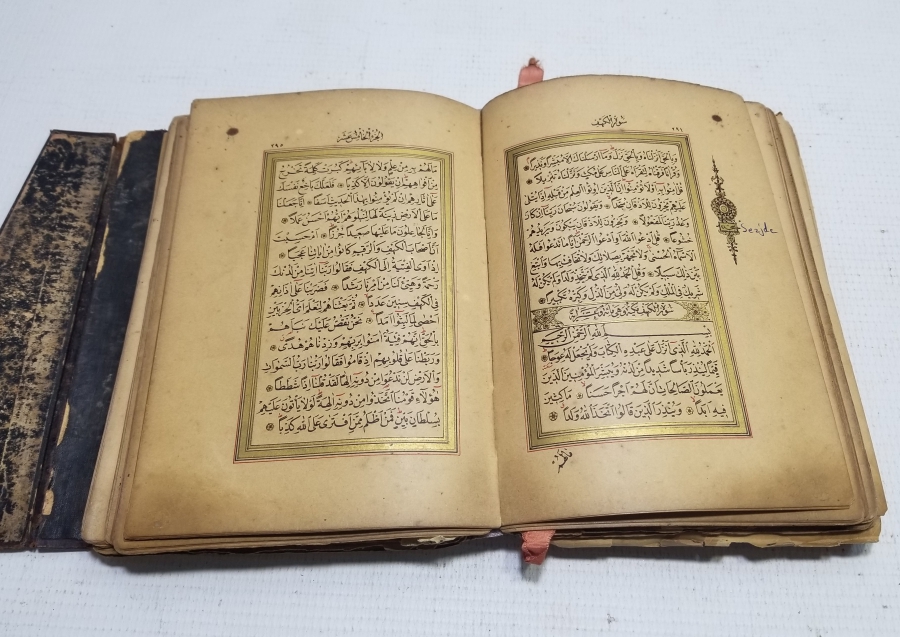 سورة الكهف
وَبِالْحَقِّ اَنْزَلْنَاهُ وَبِالْحَقِّ نَزَلَ وَمَا اَرْسَلْنَاكَ اِلَّا مُبَشِّرًا وَنَذِيرًا
وَقُرْاٰنًا فَرَقْنَاهُ لِتَقْرَاَهُ عَلَى النَّاسِ عَلٰى مُكْثٍ وَنَزَّلْنَاهُ تَنْزِيلًا
قُلْ اٰمِنُوا بِهِ اَوْ لَا تُؤْمِنُوا اِنَّ الَّذِينَ اُوتُوا الْعِلْمَ مِنْ قَبْلِهِ اِذَا يُتْلٰى
عَلَيْهِمْ يَخِرُّونَ لِلْاَذْقَانِ سُجَّدًا وَيَقُولُونَ سُبْحَانَ رَبِّنَا اِنْ كَانَ
وَعْدُ رَبِّنَا لَمَفْعُولًا وَيَخِرُّونَ لِلْاَذْقَانِ يَبْكُونَ وَيَزِيدُهُمْ
Secjde
خُشُوعًا قُلِ ادْعُوا اللّٰهَ اَوِ ادْعُوا الرَّحْمٰنَ اَيًّا مَا تَدْعُوا فَلَهُ
الْاَسْمَاءُ الْحُسْنٰى وَلَا تَجْهَرْ بِصَلَاتِكَ وَلَا تُخَافِتْ بِهَا وَابْتَغِ
بَيْنَ ذٰلِكَ سَبِيلًا وَقُلِ الْحَمْدُ لِلّٰهِ الَّذِي لَمْ يَتَّخِذْ وَلَدًا وَلَمْ يَكُنْ لَهُ
شَرِيكٌ فِي الْمُلْكِ وَلَمْ يَكُنْ لَهُ وَلِيٌّ مِنَ الذُّلِّ وَكَبِّرْهُ تَكْبِيرًا
سورة الكهف مكية وهي مائة وعشر
بِسْمِ اللّٰهِ الرَّحْمٰنِ الرَّحِيمِ
اَلْحَمْدُ لِلّٰهِ الَّذِي اَنْزَلَ عَلٰى عَبْدِهِ الْكِتَابَ وَلَمْ يَجْعَلْ لَهُ عِوَجًا
قَيِّمًا لِيُنْذِرَ بَاْسًا شَدِيدًا مِنْ لَدُنْهُ وَيُبَشِّرَ الْمُؤْمِنِينَ الَّذِينَ
يَعْمَلُونَ الصَّالِحَاتِ اَنَّ لَهُمْ اَجْرًا حَسَنًا مَاكِثِينَ
فِيهِ اَبَدًا وَيُنْذِرَ الَّذِينَ قَالُوا اتَّخَذَ اللّٰهُ وَلَدًا
مالهم
الجزء الخامس عشر
٢٩٥
مَا لَهُمْ بِهِ مِنْ عِلْمٍ وَلَا لِاٰبَائِهِمْ كَبُرَتْ كَلِمَةً تَخْرُجُ
مِنْ اَفْوَاهِهِمْ اِنْ يَقُولُونَ اِلَّا كَذِبًا فَلَعَلَّكَ بَاخِعٌ نَفْسَكَ
عَلٰى اٰثَارِهِمْ اِنْ لَمْ يُؤْمِنُوا بِهٰذَا الْحَدِيثِ اَسَفًا اِنَّا جَعَلْنَا
مَا عَلَى الْاَرْضِ زِينَةً لَهَا لِنَبْلُوَهُمْ اَيُّهُمْ اَحْسَنُ عَمَلًا
وَاِنَّا لَجَاعِلُونَ مَا عَلَيْهَا صَعِيدًا جُرُزًا اَمْ حَسِبْتَ
اَنَّ اَصْحَابَ الْكَهْفِ وَالرَّقِيمِ كَانُوا مِنْ اٰيَاتِنَا عَجَبًا
اِذْ اَوَى الْفِتْيَةُ اِلَى الْكَهْفِ فَقَالُوا رَبَّنَا اٰتِنَا مِنْ لَدُنْكَ
رَحْمَةً وَهَيِّئْ لَنَا مِنْ اَمْرِنَا رَشَدًا فَضَرَبْنَا عَلٰى اٰذَانِهِمْ
فِي الْكَهْفِ سِنِينَ عَدَدًا ثُمَّ بَعَثْنَاهُمْ لِنَعْلَمَ اَيُّ الْحِزْبَيْنِ
اَحْصٰى لِمَا لَبِثُوا اَمَدًا نَحْنُ نَقُصُّ عَلَيْكَ نَبَاَهُمْ
بِالْحَقِّ اِنَّهُمْ فِتْيَةٌ اٰمَنُوا بِرَبِّهِمْ وَزِدْنَاهُمْ هُدًى
وَرَبَطْنَا عَلٰى قُلُوبِهِمْ اِذْ قَامُوا فَقَالُوا رَبُّنَا رَبُّ السَّمٰوَاتِ
وَالْاَرْضِ لَنْ نَدْعُوَا مِنْ دُونِهِ اِلٰهًا لَقَدْ قُلْنَا اِذًا شَطَطًا
هٰؤُلَاءِ قَوْمُنَا اتَّخَذُوا مِنْ دُونِهِ اٰلِهَةً لَوْلَا يَاْتُونَ عَلَيْهِمْ
بِسُلْطَانٍ بَيِّنٍ فَمَنْ اَظْلَمُ مِمَّنِ افْتَرٰى عَلَى اللّٰهِ كَذِبًا